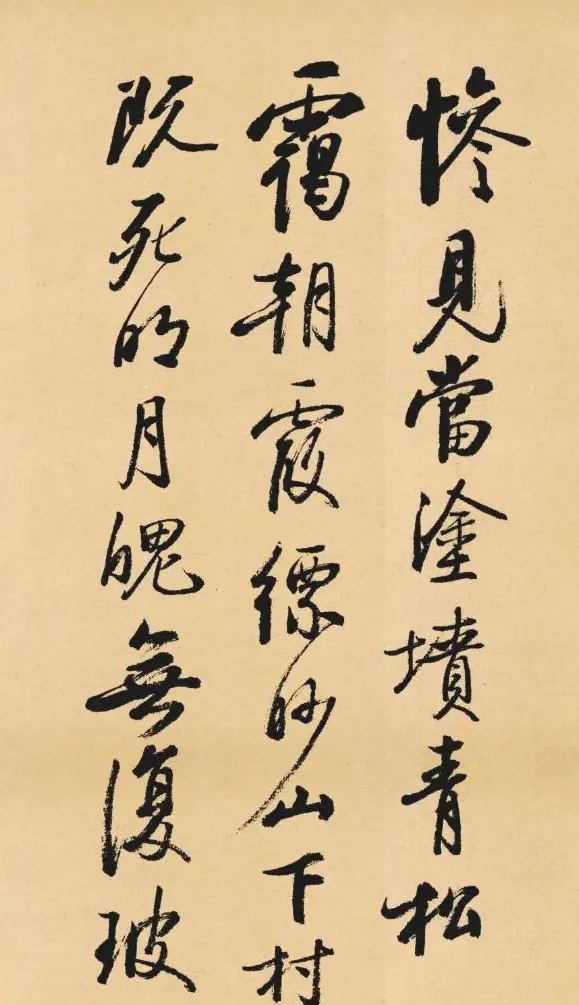 惨見當塗墳青松
靄朝霞縹眇山下村
既死明月魄無復玻